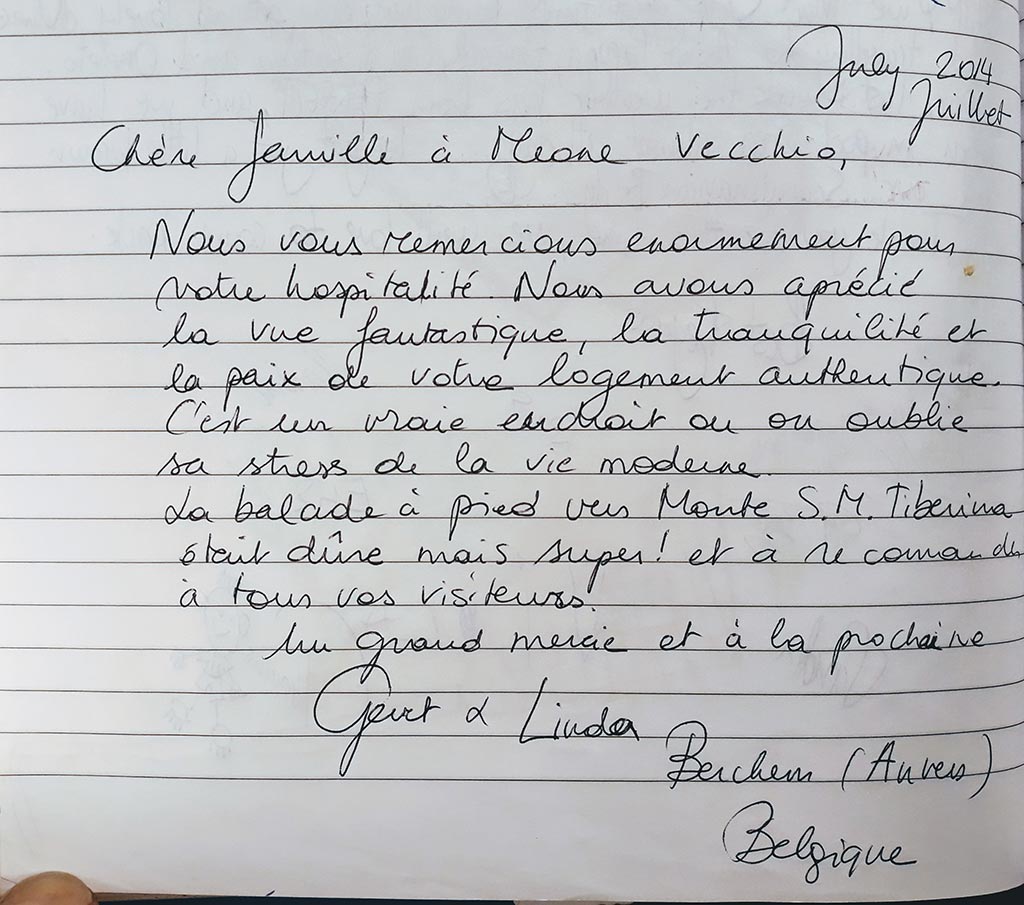 July 2014
Juillet
Chère famille à Meone Vecchio,
Nous vous remercions enormement pour
votre hospitalité. Nous avons aprécié
la vue fantastique, la tranquilité et
la paix de votre logement authentique.
C'est un vraie endroit ou on oublie
sa stress de la vie moderne.
La balade à pied vers Monte S.M. Tiberina
était dûre mais super! et à recomander
à tous vos visiteurs!
Un grand mercie et à la prochaine
Geert & Linda
Berchem (Anvers)
Belgique